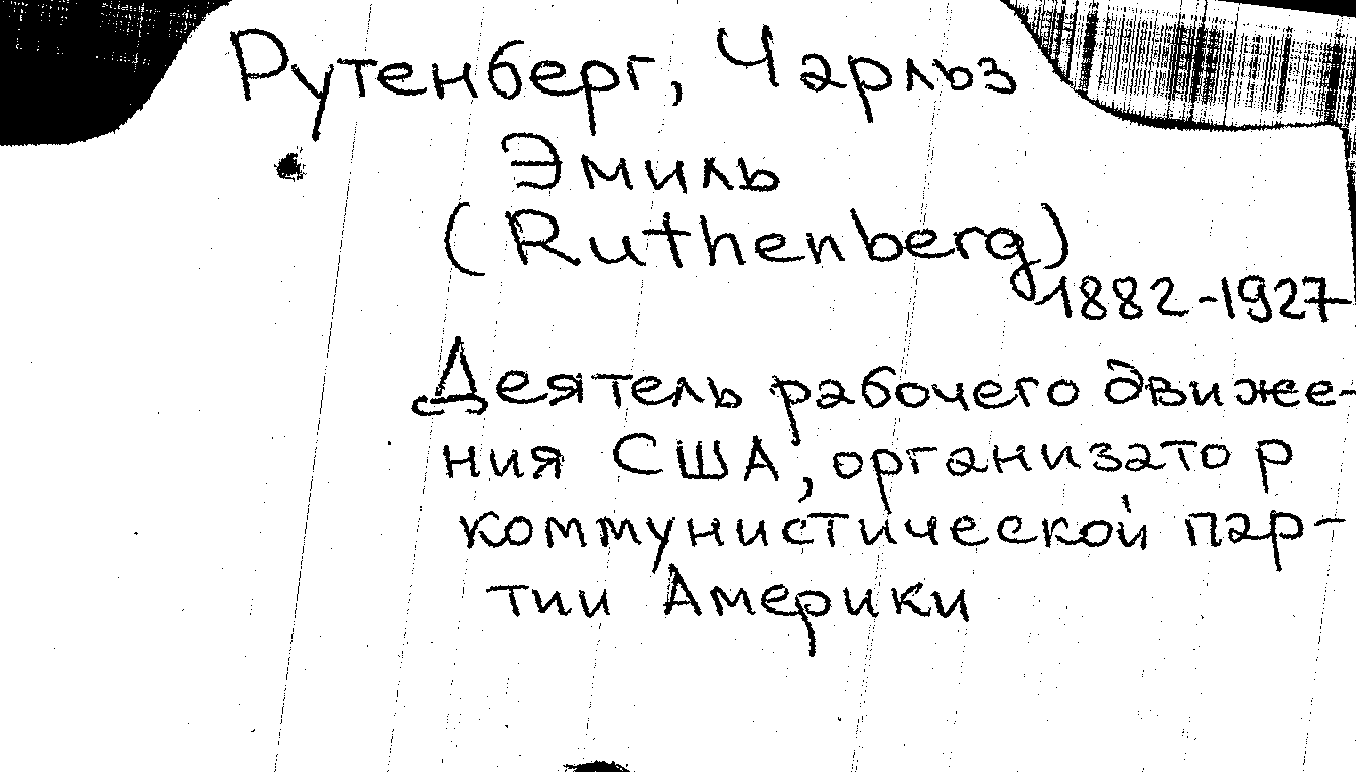 Рутенберг, Чарльз
Эмиль
(Ruthenberg)
1882-1927
Деятель рабочего движе-
ния США, организатор
коммунистической пар-
тии Америки